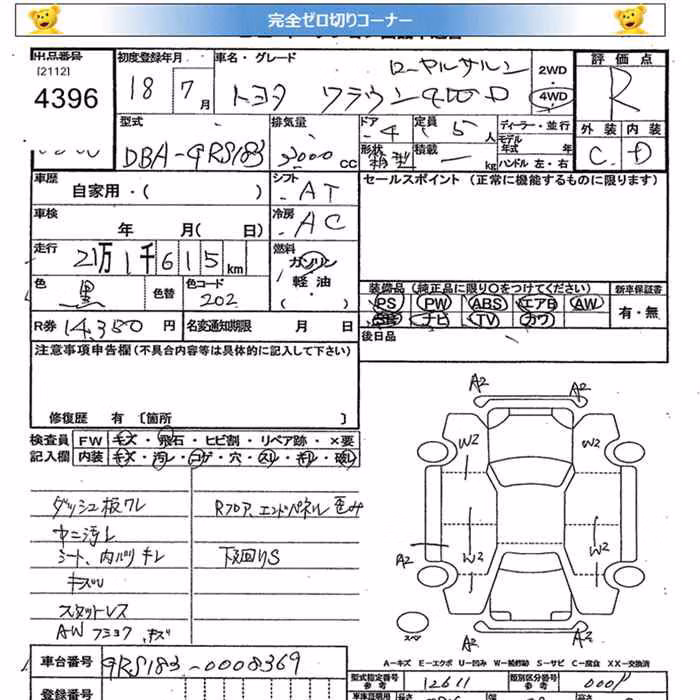 完全ゼロ切りコーナー
出品番号
[2112]
4396
初度登録年月
18 7月
車名・グレード
ローヤルサルン
トヨタ クラウン4WD
2WD
・
4WD
評価点
R
外装 内装
C D
型式
DBA-GRS183
排気量
3000cc
ドア
4
形状
箱型
定員
5人
積載
kg
ディーラー・並行
モデル年式 年
ハンドル 左・右
車歴
自家用・( )
シフト
AT
セールスポイント (正常に機能するものに限ります)
車検
年 月( 日)
冷房
AC
走行
2万1千615km
燃料
ガソリン
・
軽油
( ・ )
色
黒
色替
色コード
202
装備品(純正品に限り○をつけてください)
新車保証書
PS PW ABS エアB AW
ナビ TV カワ
有・無
R券 14,380円
名変通知期限 月 日
後日品
注意事項申告欄(不具合内容等は具体的に記入して下さい)
修復歴 有 [箇所 ]
検査員 FW キズ・飛石・ヒビ割・リペア跡・×要
記入欄 内装 キズ・汚レ・コゲ・穴・スリ・キレ・破レ
ダッシュ板ワレ
ヤニ汚レ
シート、内バリキレ
キズU
スタットレス
AW フミヨク、キズ
Rフロア、エンドパネル歪み
下回りS
A2 A2
W2 W2
A2 W2 W2
スペア
U2 A2
A-キズ E-エクボ U-凹み W-補修跡 S-サビ C-腐食 XX-交換済
車台番号 GRS183-0008369
登録番号
型式指定番号
参考
12611
類別区分番号
参考